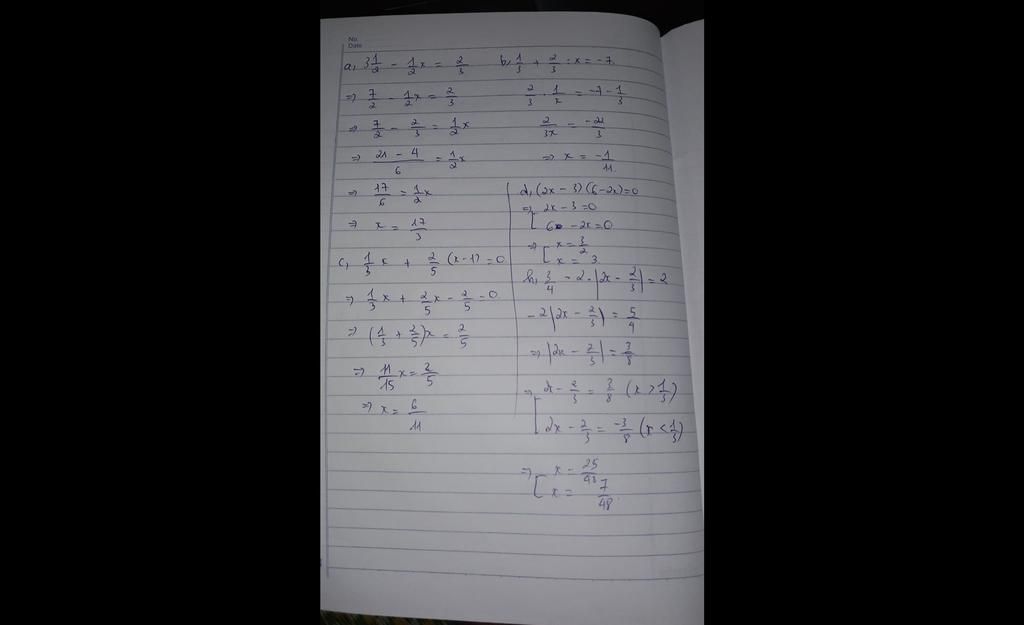 No.
Date
a, 3 1/2 - 1/2 x = 2/3
=> 7/2 - 1/2 x = 2/3
=> 7/2 - 2/3 = 1/2 x
=> (21 - 4)/6 = 1/2 x
=> 17/6 = 1/2 x
=> x = 17/3
c, 1/3 x + 2/5 (x-1) = 0
=> 1/3 x + 2/5 x - 2/5 = 0
=> (1/3 + 2/5) x = 2/5
=> 11/15 x = 2/5
=> x = 6/11
b, 1/3 + 2/3 : x = -7
2/3 . 1/x = -7 - 1/3
2/3x = -22/3
=> x = -1/11
d, (2x - 3)(6 - 2x) = 0
=> [ 2x - 3 = 0
6 - 2x = 0
=> [ x = 3/2
x = 3
h, 3/4 - 2 . |2x - 2/3| = 2
-2 |2x - 2/3| = 5/4
=> |2x - 2/3| = 3/8
=> [ 2x - 2/3 = 3/8 (x > 1/3)
2x - 2/3 = -3/8 (x < 1/3)
=> [ x = 25/48
x = 7/48